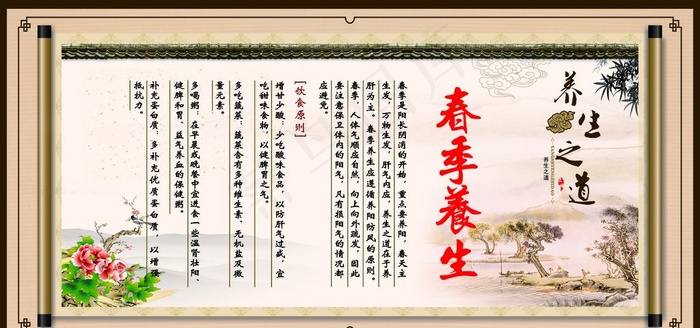 养生之道
养生之道
春季養生
春季是阳长阴消的开始，重点要养阳，春天主
生发，万物生发，肝气内应，养生之道在于养
肝为主。春季养生应遵循养阳防风的原则。
春季，人体气顺应自然，向上向外疏发，因此
要注意保卫体内的阳气，凡有损阳气的情况都
应避免。
[饮食原则]
增甘少酸：少吃酸味食品，以防肝气过盛，宜
吃甜味食物，以健脾胃之气。
多吃蔬菜：蔬菜含有多种维生素、无机盐及微
量元素。
多喝粥：在早晨或晚餐中宜进食一些温肾壮阳、
健脾和胃、益气养血的保健粥。
补充蛋白质：多补充优质蛋白质，以增强
抵抗力。